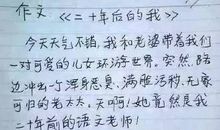 作文 《二十年后的我》
今天天气不错，我和老婆带着我们
一对可爱的儿女环游世界，突然，路
边冲出一个浑身恶臭、满脸污秽、无家
可归的老太太，天啊！她竟然是我
二十年前的语文老师！